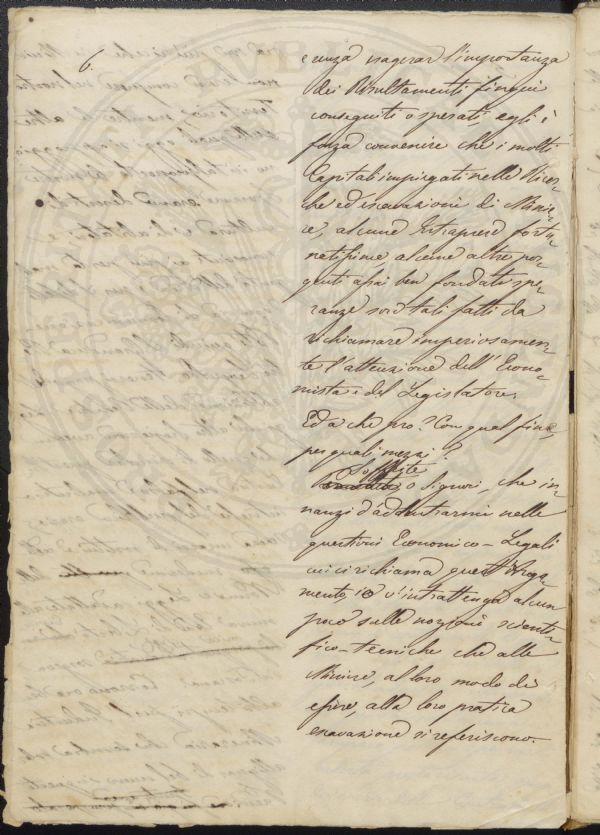 6.
e senza esagerar l'importanza
dei Risultamenti finqui
conseguiti o sperati, egli è
forza convenire che i molti
Capitali impiegati nelle Ricer=
che ed escavazioni di Minie=
re, alcune Intraprese fortu=
natissime, alcune altre por=
genti assai ben fondate spe=
ranze son tali fatti da
richiamare imperiosamen=
te l'attenzione dell'Econo=
mista e del Legislatore.
Ed a che pro? Con qual fine,
per quali mezzi?
Soffrite
o Signori, che in=
nanzi d'addentrarmi nelle
questioni Economico-Legali
cui ci richiama quest'Argo=
mento, io v'intrattenga alcun
poco sulle nozioni scienti=
fico-tecniche che alle
Miniere, al loro modo di
essere, alla loro pratica
escavazione si riferiscono.